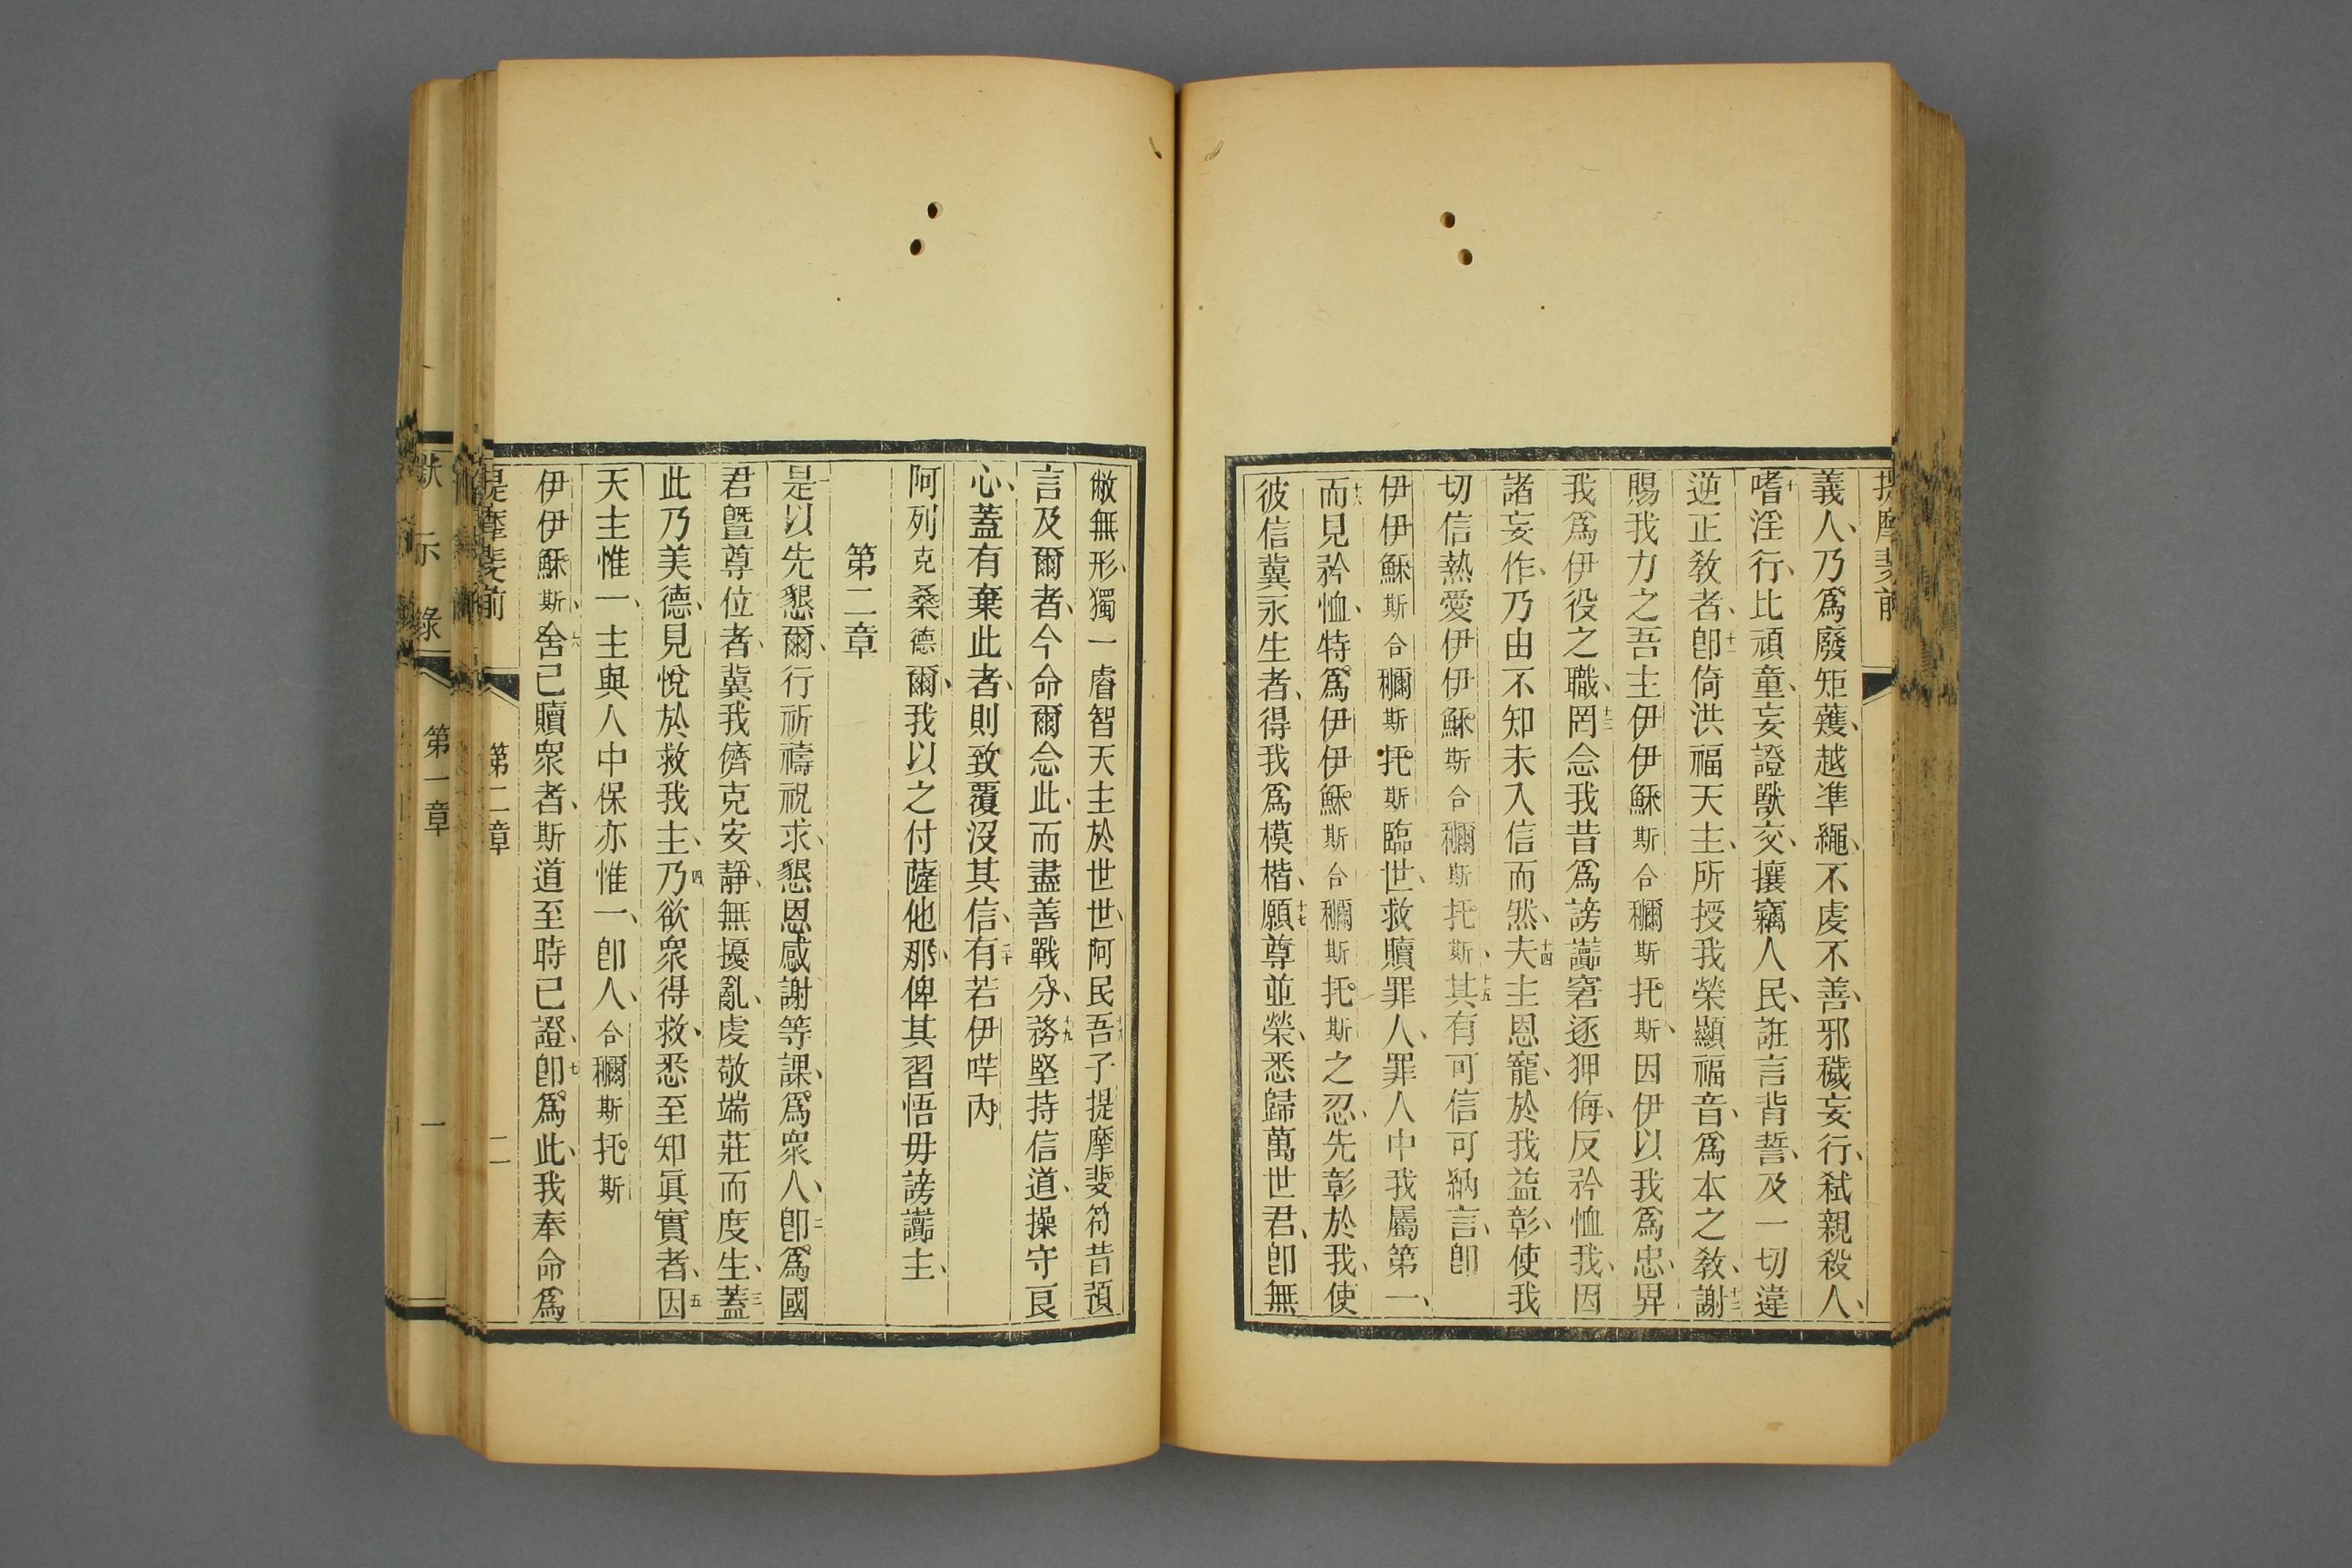 提摩斐前
義人、乃爲廢矩蒦、越準繩、不虔不善、邪穢妄行、弑親殺人、
十嗜淫行、比頑童、妄證獸交、攘竊人民、誑言背誓、及一切違
逆正敎者、十一卽倚洪福天主、所授我榮顯福音、爲本之敎、十二謝
賜我力之吾主伊伊穌斯合穪斯托斯、因伊以我爲忠、畀
我爲伊役之職、十三罔念我昔爲謗讟窘逐狎侮、反矜恤我、因
諸妄作、乃由不知未入信而然、十四夫主恩寵、於我益彰、使我
切信熱愛伊伊穌斯合穪斯托斯、十五其有可信可納言、卽
伊伊穌斯合穪斯托斯臨世、救贖罪人、罪人中我屬第一、
十六而見矜恤、特爲伊伊穌斯合穪斯托斯之忍、先彰於我、使
彼信冀永生者、得我爲模楷、十七願尊並榮、悉歸萬世君、卽無
敝無形、獨一睿智天主於世世、阿民十八吾子提摩斐符昔預
言及爾者、今命爾念此、而盡善戰分、十九務堅持信道、操守良
心、蓋有棄此者、則致覆沒其信、二十有若伊哶內
阿列克桑德爾、我以之付薩他那、俾其習悟毋謗讟主、
第二章
一是以先懇爾、行祈禱祝求、懇恩感謝等課、爲衆人、二卽爲國
君曁尊位者、冀我儕克安靜、無擾亂、虔敬端莊而度生、三蓋
此乃美德、見悅於救我主、四乃欲衆得救、悉至知眞實者、五因
天主惟一、主與人中保亦惟一、卽人、合穪斯托斯
伊伊穌斯、六舍己贖衆者、斯道至時已證、七卽爲此、我奉命爲
提摩斐前 第二章 二
默示錄 第一章 一